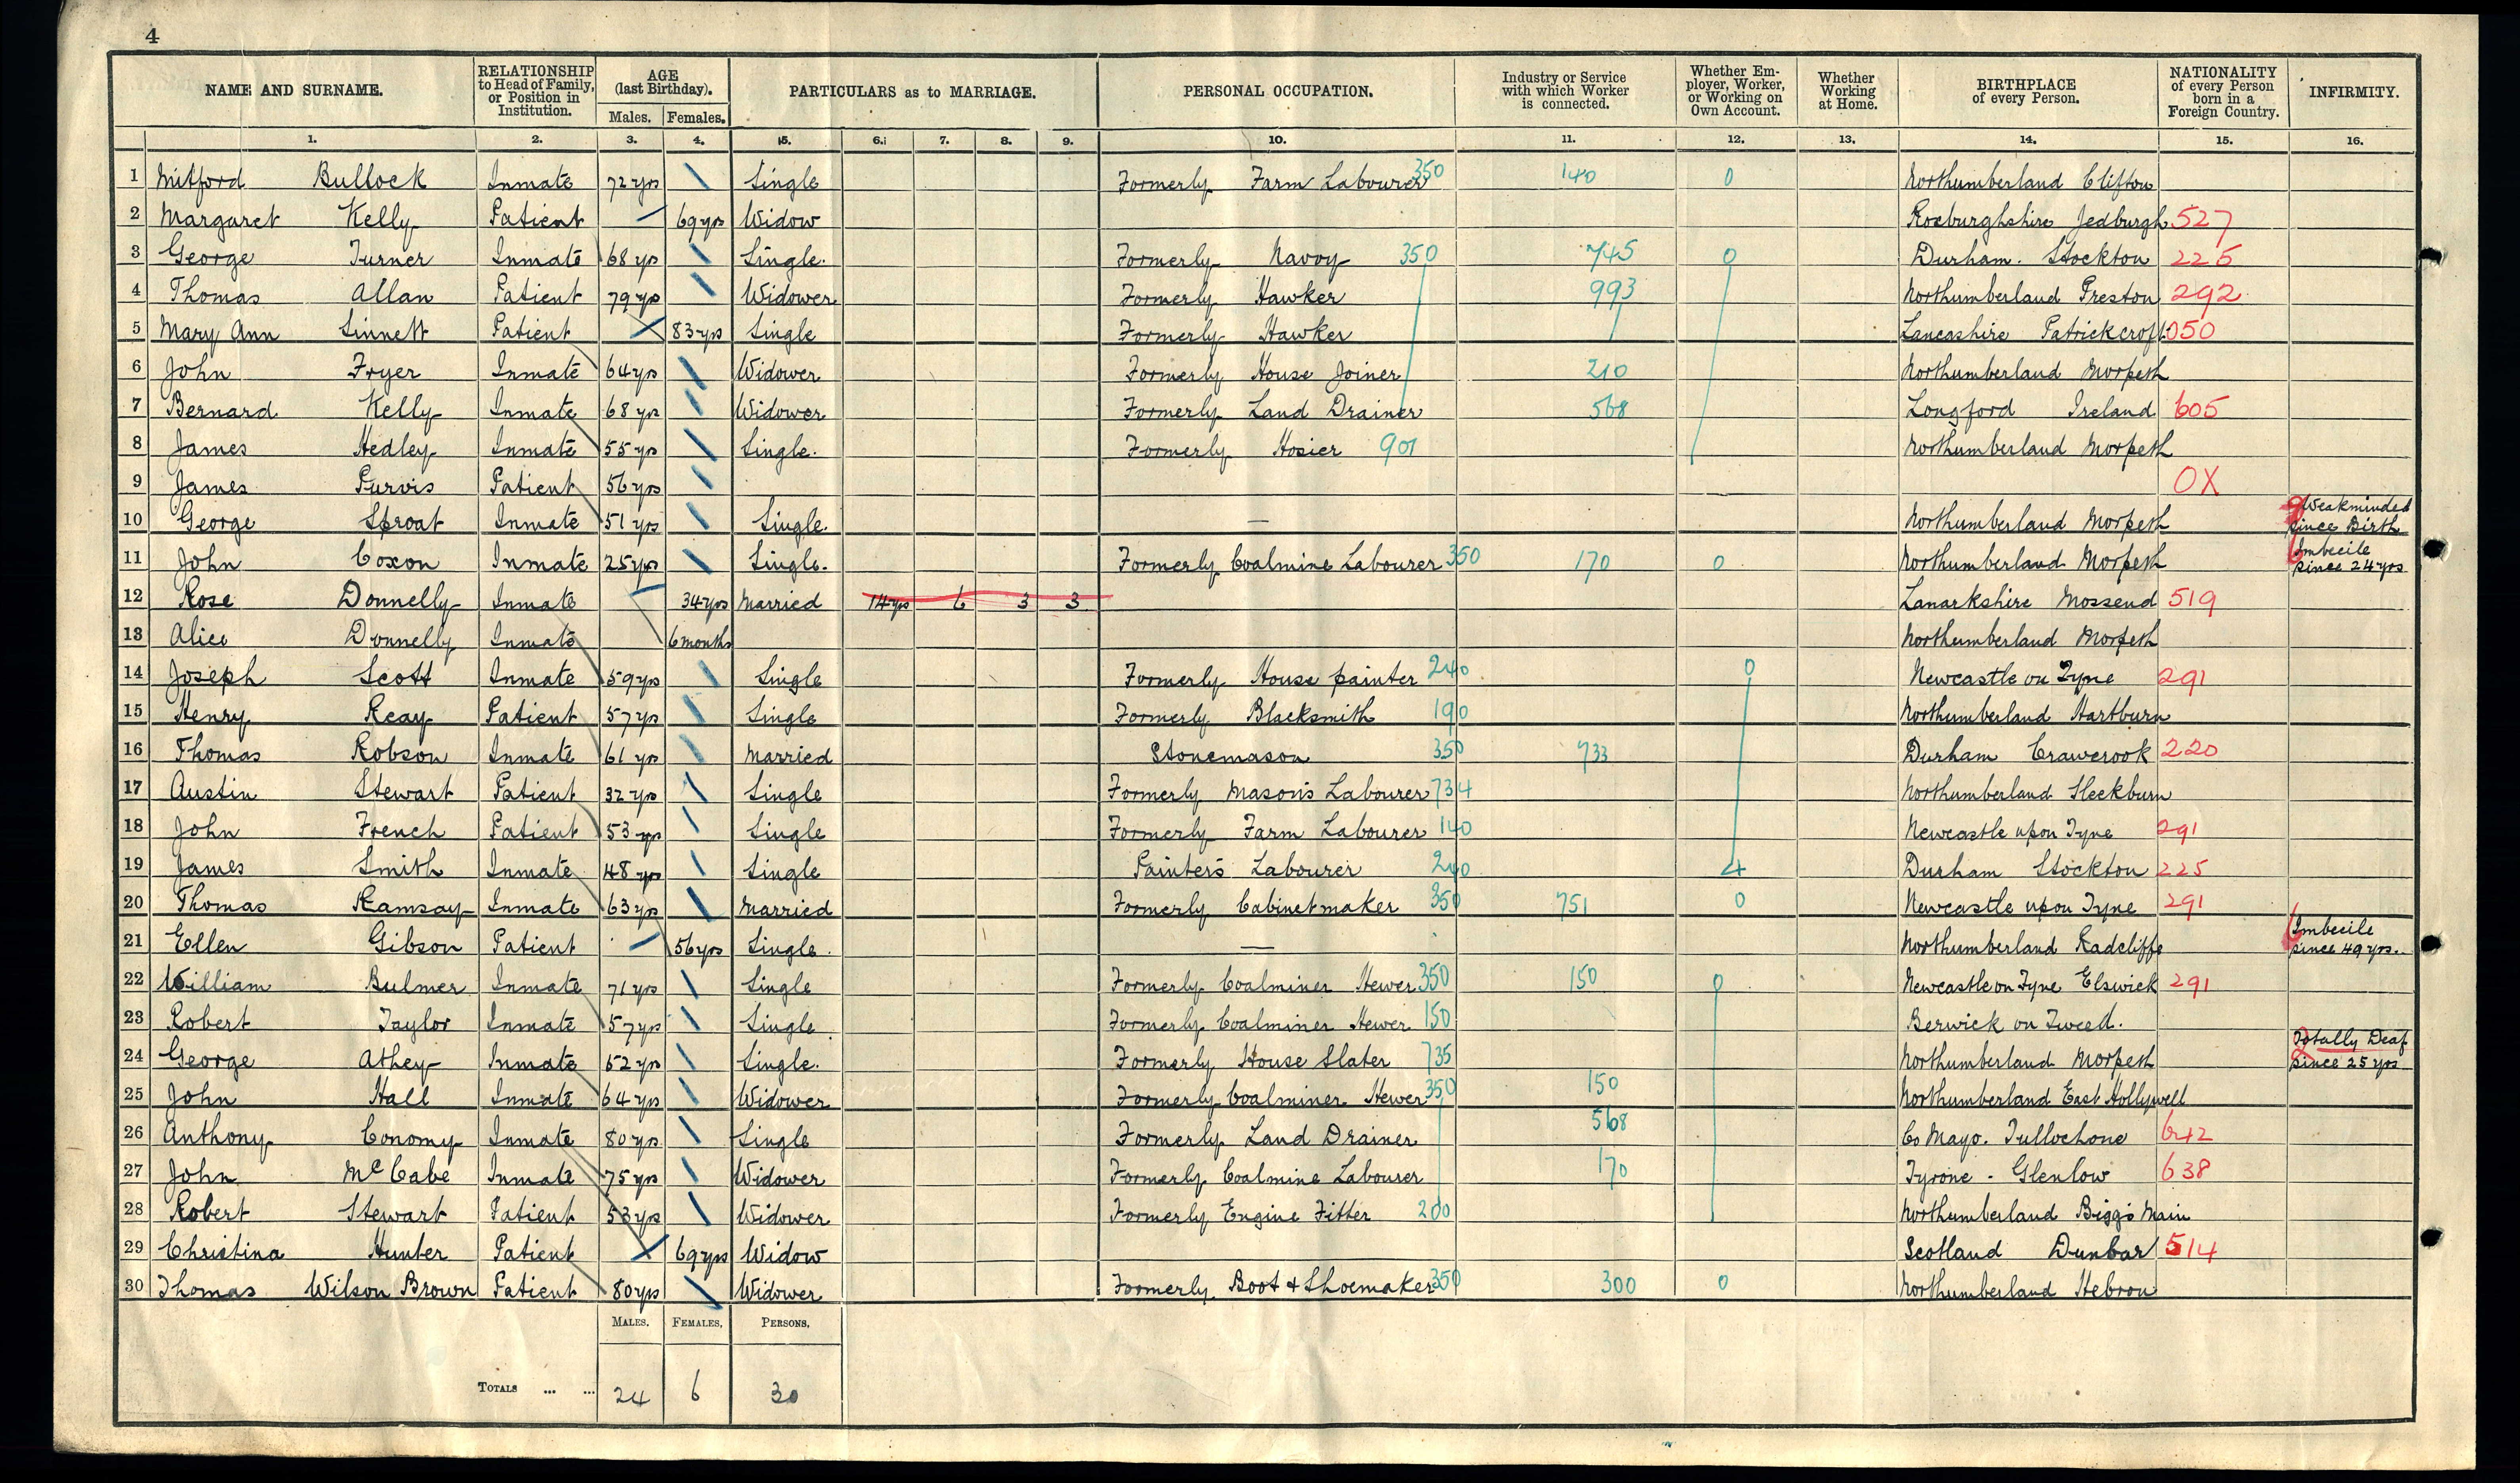 4
NAME AND SURNAME. RELATIONSHIP to Head of Family, or Position in Institution. AGE (last Birthday). Males. Females. PARTICULARS as to MARRIAGE. PERSONAL OCCUPATION. Industry or Service with which Worker is connected. Whether Employer, Worker, or Working on Own Account. Whether Working at Home. BIRTHPLACE of every Person. NATIONALITY of every Person born in a Foreign Country. INFIRMITY.
1. 2. 3. 4. 5. 6. 7. 8. 9. 10. 11. 12. 13. 14. 15. 16.
1 Mitford Bullock Inmate 72 yrs Single Formerly Farm Labourer 350 140 0 Northumberland Clifton
2 Margaret Kelly Patient 69 yrs Widow Roxburghshire Jedburgh 527
3 George Turner Inmate 68 yrs Single. Formerly Navvy 350 745 0 Durham. Stockton 225
4 Thomas Allan Patient 79 yrs Widower Formerly Hawker 993 Northumberland Preston 292
5 Mary Ann Sinnett Patient 83 yrs Single Formerly Hawker Lancashire Patrickcroft 050
6 John Fryer Inmate 64 yrs Widower Formerly House Joiner 210 Northumberland Morpeth
7 Bernard Kelly Inmate 68 yrs Widower Formerly Land Drainer 568 Longford Ireland 605
8 James Hedley Inmate 55 yrs Single. Formerly Hosier 901 Northumberland Morpeth
9 James Purvis Patient 56 yrs OX
10 George Sproat Inmate 51 yrs Single. — Northumberland Morpeth 9 Weakminded since Birth
11 John Coxon Inmate 25 yrs Single. Formerly Coalmine Labourer 350 170 0 Northumberland Morpeth Imbecile since 24 yrs
12 Rose Donnelly Inmate 34 yrs Married 14 yrs 6 3 3 Lanarkshire Mossend 519
13 Alice Donnelly Inmate 6 months Northumberland Morpeth
14 Joseph Scott Inmate 59 yrs Single Formerly House painter 240 0 Newcastle on Tyne 291
15 Henry Reay Patient 57 yrs Single Formerly Blacksmith 190 Northumberland Hartburn
16 Thomas Robson Inmate 61 yrs Married Stonemason 350 733 Durham Crawcrook 220
17 Austin Stewart Patient 32 yrs Single Formerly Mason's Labourer 734 Northumberland Sleekburn
18 John French Patient 53 yrs Single Formerly Farm Labourer 140 Newcastle upon Tyne 291
19 James Smith Inmate 48 yrs Single Painter's Labourer 240 4 Durham Stockton 225
20 Thomas Ramsay Inmate 63 yrs Married Formerly Cabinetmaker 350 751 0 Newcastle upon Tyne 291
21 Ellen Gibson Patient 56 yrs Single. — Northumberland Radcliffe Imbecile since 49 yrs.
22 William Bulmer Inmate 71 yrs Single Formerly Coalminer Hewer 350 150 0 Newcastle on Tyne Elswick 291
23 Robert Taylor Inmate 57 yrs Single Formerly Coalminer Hewer 150 Berwick on Tweed.
24 George Athey Inmate 52 yrs Single. Formerly House Slater 735 Northumberland Morpeth Totally Deaf since 25 yrs
25 John Hall Inmate 64 yrs Widower Formerly Coalminer Hewer 350 150 Northumberland East Hollywell
26 Anthony Conomy Inmate 80 yrs Single Formerly Land Drainer 568 Co Mayo. Tullochone 642
27 John McCabe Inmate 75 yrs Widower Formerly Coalmine Labourer 170 Tyrone - Glenlow 638
28 Robert Stewart Patient 53 yrs Widower Formerly Engine Fitter 200 Northumberland Bigg's Main
29 Christina Hunter Patient 69 yrs Widow Scotland Dunbar 514
30 Thomas Wilson Brown Patient 80 yrs Widower Formerly Boot & Shoemaker 350 300 0 Northumberland Hebron
MALES. FEMALES. PERSONS.
TOTALS ... ... 24 6 30